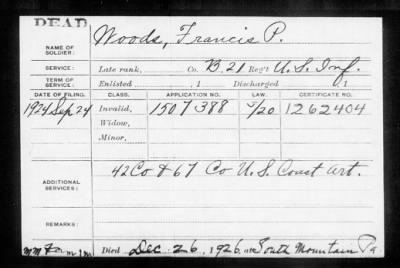 DEAD
NAME OF SOLDIER: Woods, Francis P.
SERVICE: Late rank, Co. B, 21 Reg't U.S. Inf.
TERM OF SERVICE: Enlisted , 1 Discharged , 1
DATE OF FILING. CLASS. APPLICATION NO. LAW. CERTIFICATE NO.
1924 Sep 24 Invalid, 1507388 5/20 1262404
Widow,
Minor,
ADDITIONAL SERVICES: 42 Co & 67 Co U.S. Coast Art.
REMARKS:
Died Dec. 26, 1926, at South Mountain Pa